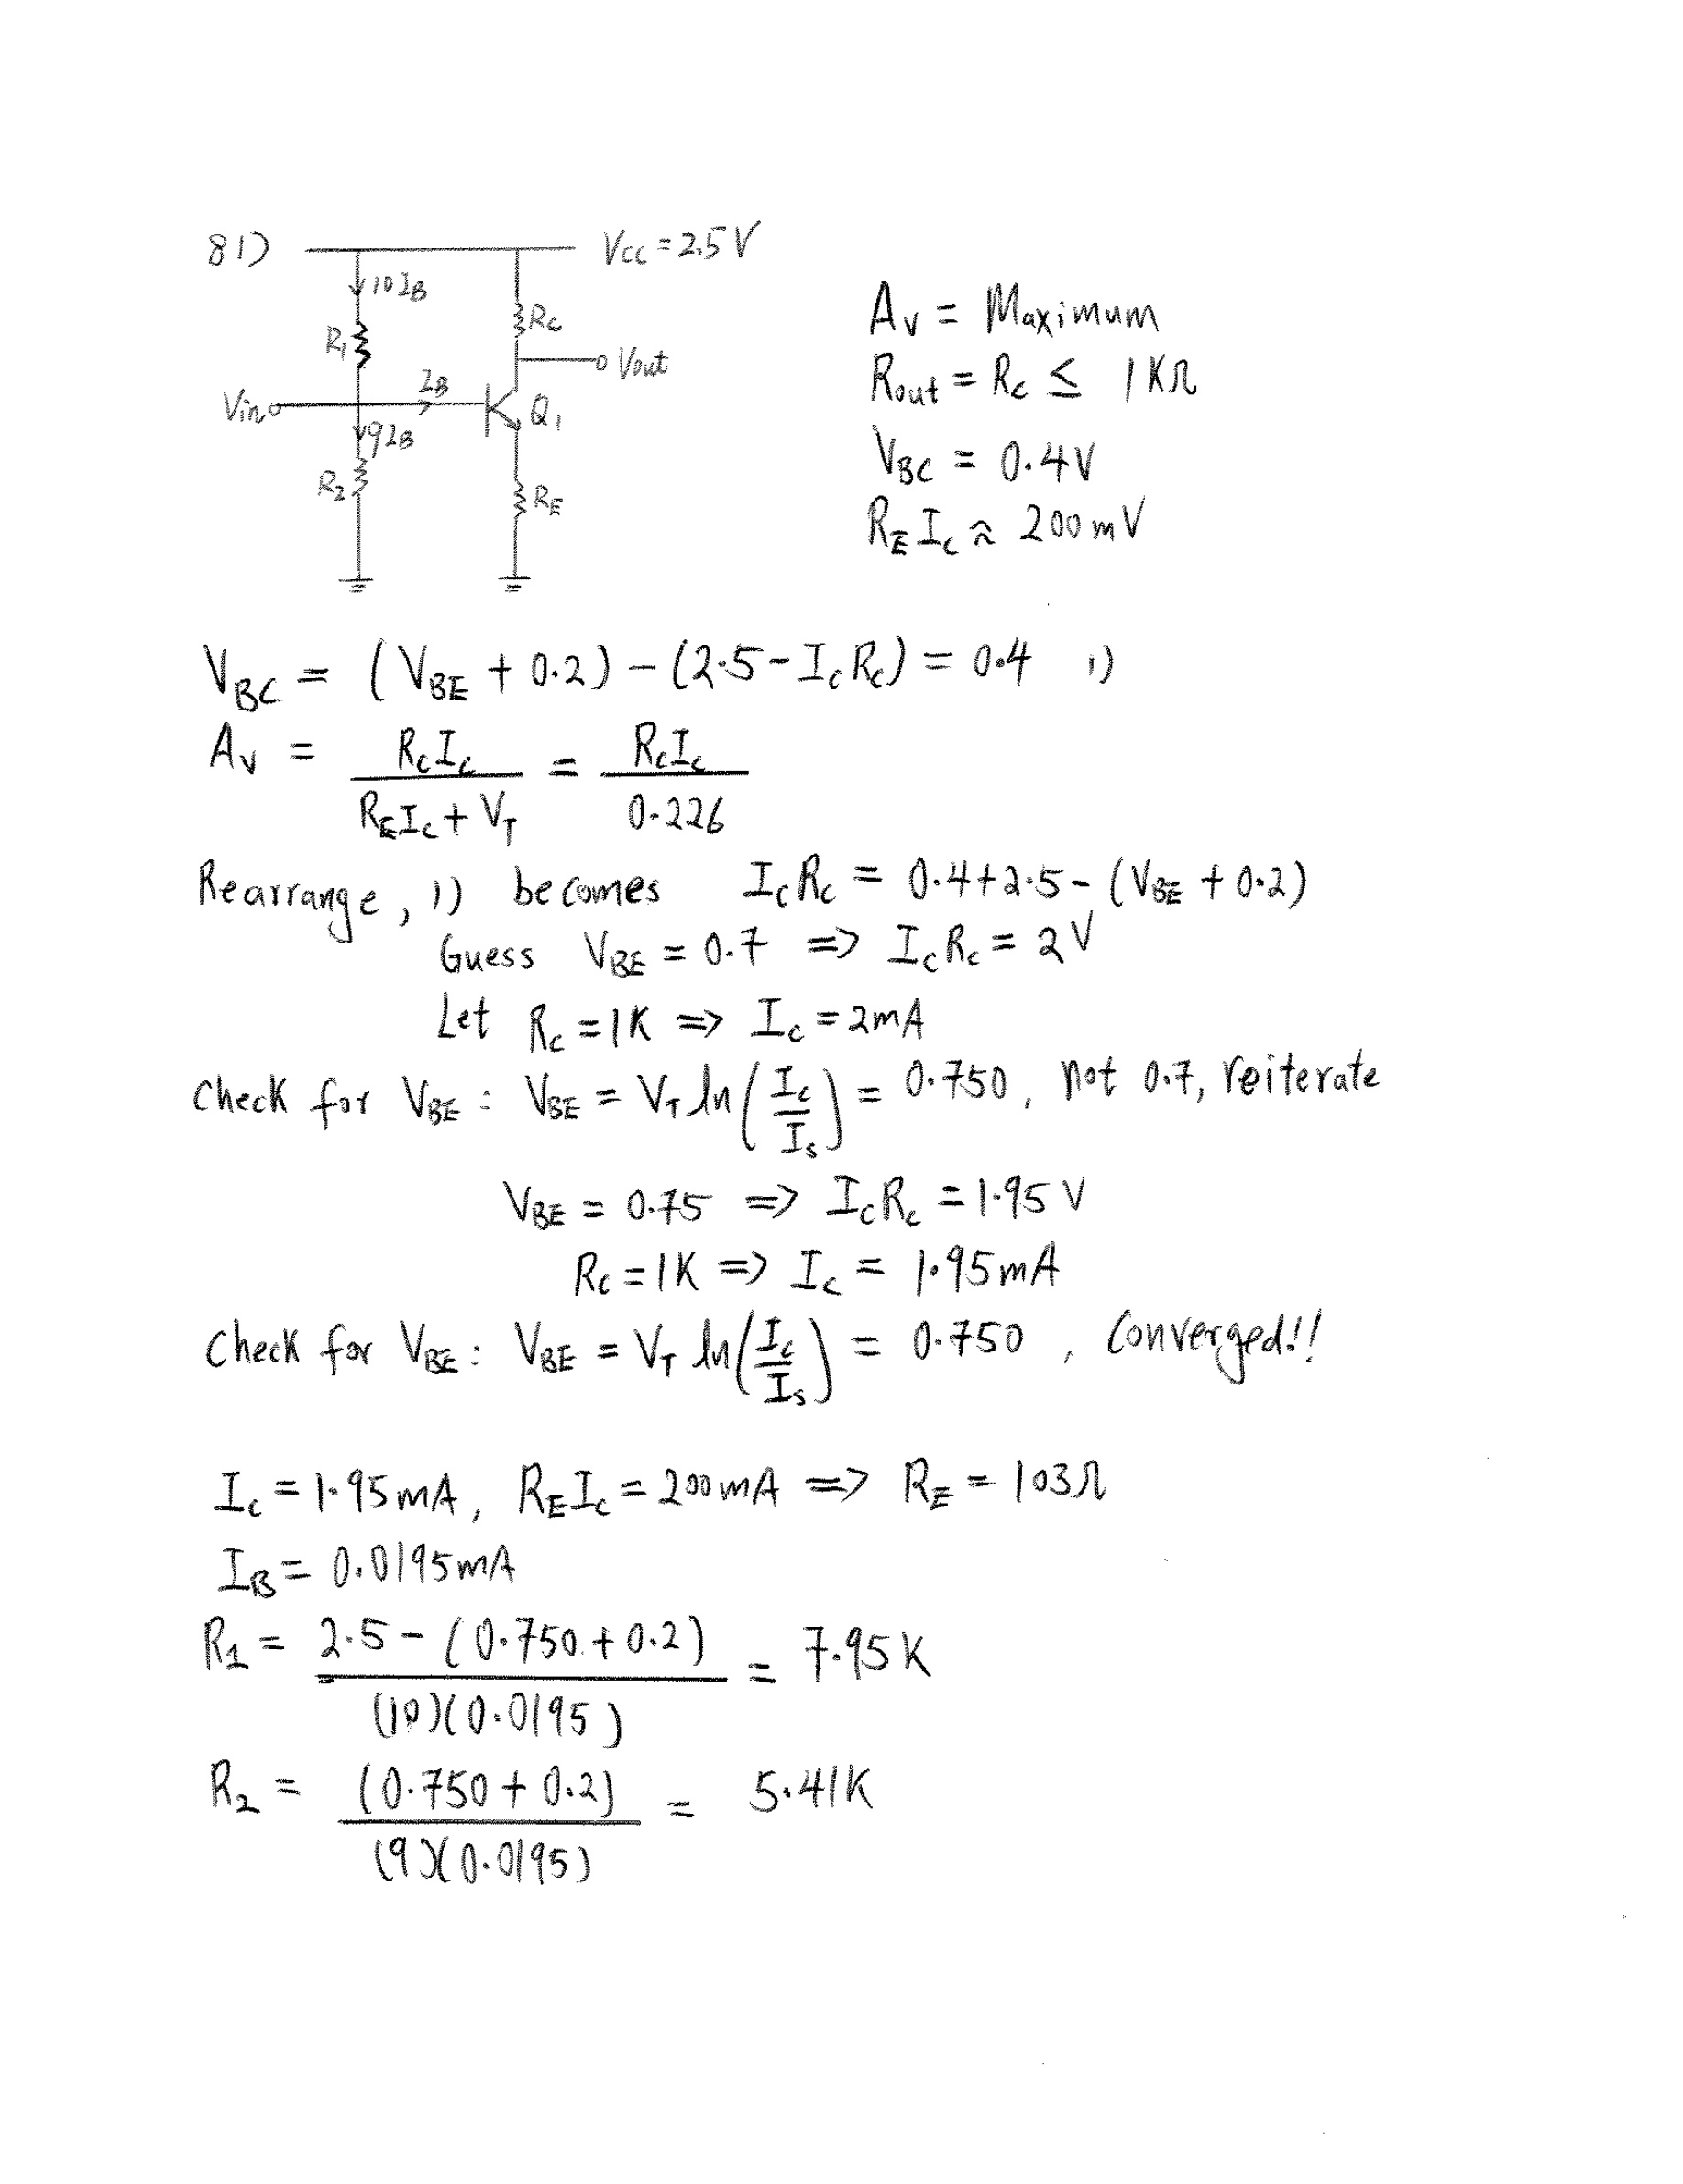 81) Vcc = 2.5V
10IB
R1
Rc
Vout
Vin
IB
Q1
9IB
R2
RE
Av = Maximum
Rout = Rc ≤ 1KΩ
VBC = 0.4V
REIc ≈ 200mV
VBC = (VBE + 0.2) - (2.5 - IcRc) = 0.4 1)
Av = RcIc / (REIc + VT) = RcIc / 0.226
Rearrange, 1) becomes IcRc = 0.4+2.5 - (VBE + 0.2)
Guess VBE = 0.7 => IcRc = 2V
Let Rc = 1K => Ic = 2mA
Check for VBE : VBE = VT ln(Ic/Is) = 0.750, not 0.7, reiterate
VBE = 0.75 => IcRc = 1.95 V
Rc = 1K => Ic = 1.95mA
Check for VBE : VBE = VT ln(Ic/Is) = 0.750, Converged!!
Ic = 1.95mA, REIc = 200mA => RE = 103Ω
IB = 0.0195mA
R1 = 2.5 - (0.750 + 0.2) / (10)(0.0195) = 7.95K
R2 = (0.750 + 0.2) / (9)(0.0195) = 5.41K